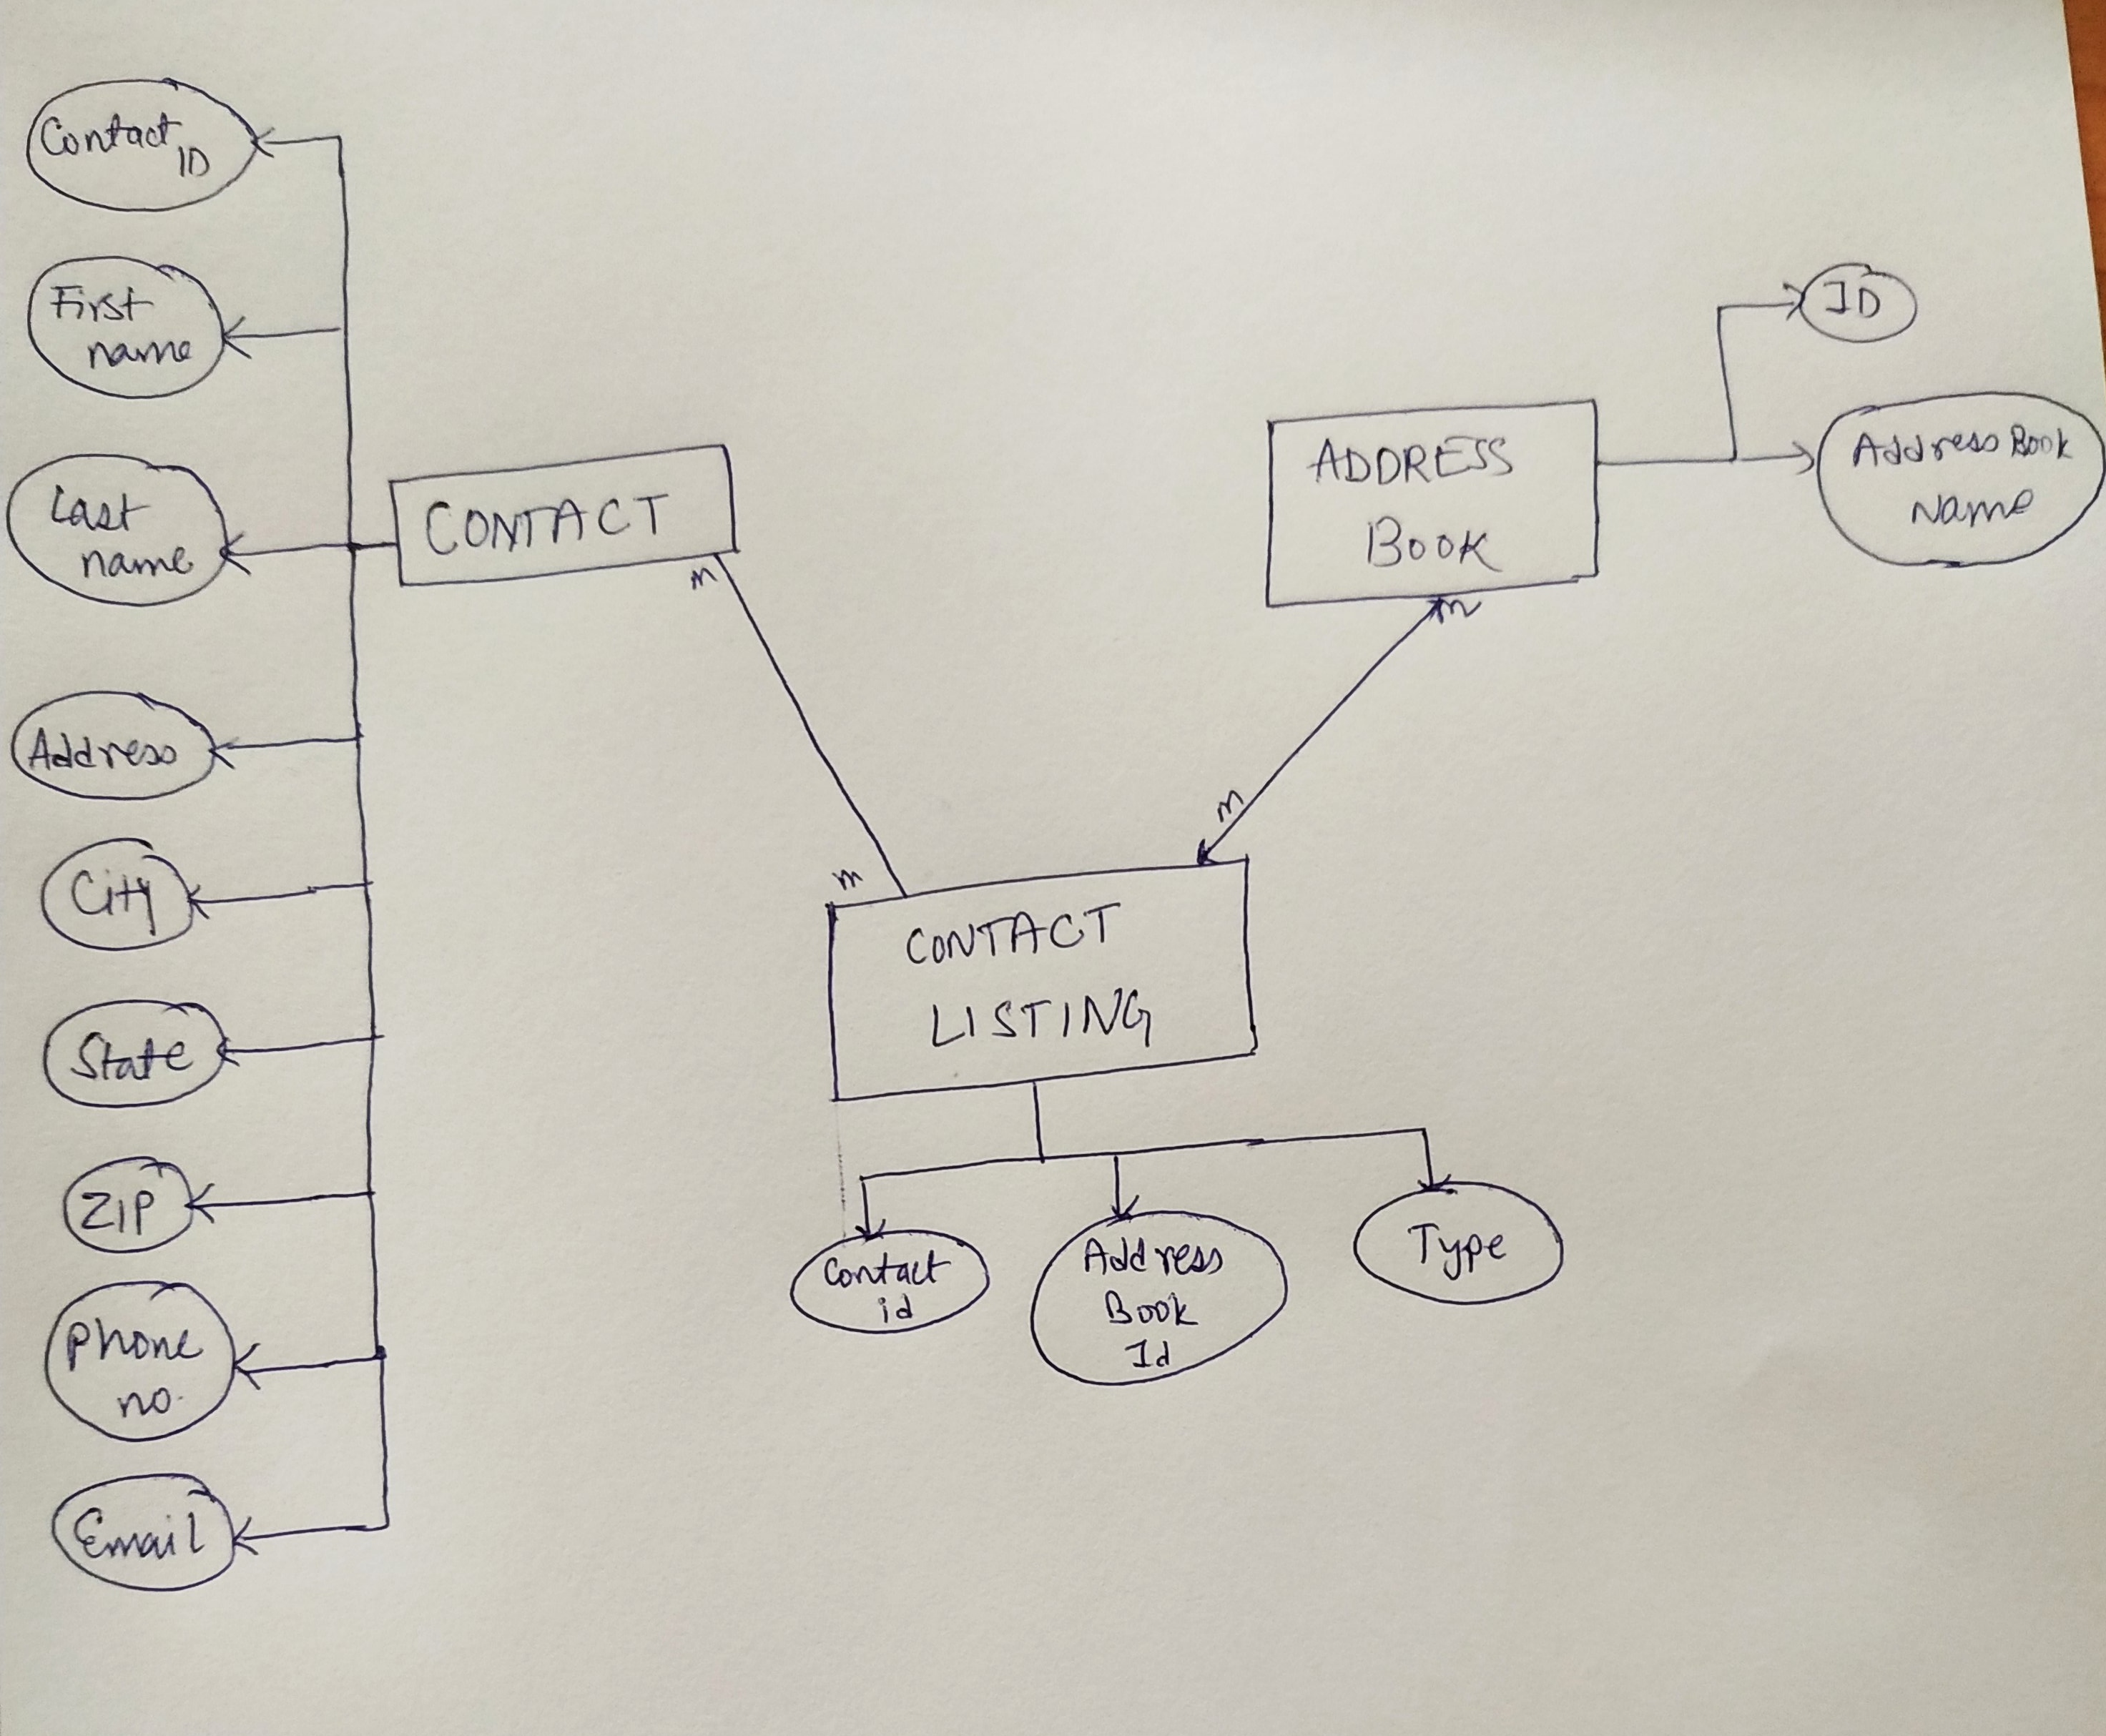 Contact
ID
First
name
Last
name
Address
City
State
ZIP
Phone
no.
Email
CONTACT
m
m
ADDRESS
BOOK
m
m
ID
Address Book
Name
CONTACT
LISTING
Contact
id
Address
Book
Id
Type